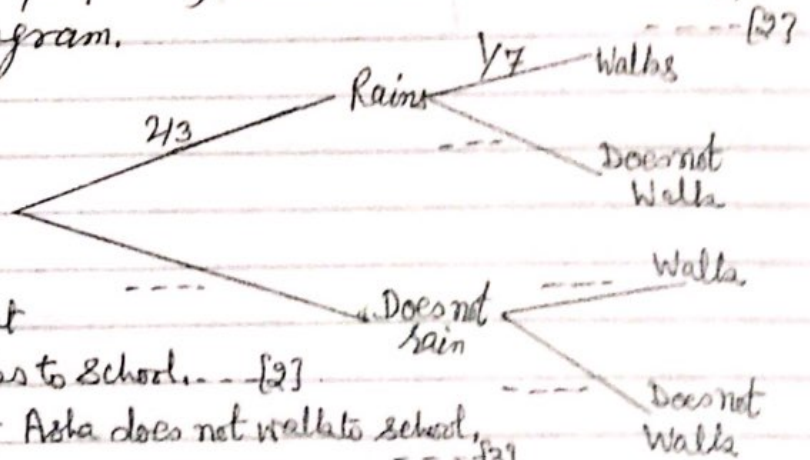 gram.
- - - - - [2]
Rains
1/7
Walks
2/3
- - -
Does not
Walk
- - - -
Does not
rain
- - - -
Walk
- - - -
Does not
Walk
t
s to School. - - - [2]
Asha does not walk to school,
- - - - [2]